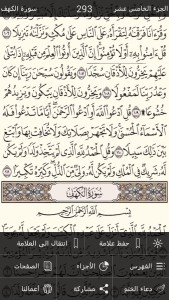 سورة الكهف 293 الجزء الخامس عشر
وَقُرْءَانًا فَرَقْنَٰهُ لِتَقْرَأَهُۥ عَلَى ٱلنَّاسِ عَلَىٰ مُكْثٍ وَنَزَّلْنَٰهُ تَنزِيلًا ١٠٦
قُلْ ءَامِنُوا۟ بِهِۦٓ أَوْ لَا تُؤْمِنُوٓا۟ ۚ إِنَّ ٱلَّذِينَ أُوتُوا۟ ٱلْعِلْمَ مِن قَبْلِهِۦٓ إِذَا يُتْلَىٰ
عَلَيْهِمْ يَخِرُّونَ لِلْأَذْقَانِ سُجَّدًا ١٠٧ وَيَقُولُونَ سُبْحَٰنَ رَبِّنَآ إِن كَانَ
وَعْدُ رَبِّنَا لَمَفْعُولًا ١٠٨ وَيَخِرُّونَ لِلْأَذْقَانِ يَبْكُونَ وَيَزِيدُهُمْ
خُشُوعًا ۩ ١٠٩ قُلِ ٱدْعُوا۟ ٱللَّهَ أَوِ ٱدْعُوا۟ ٱلرَّحْمَٰنَ ۖ أَيًّا مَّا تَدْعُوا۟ فَلَهُ
ٱلْأَسْمَآءُ ٱلْحُسْنَىٰ ۚ وَلَا تَجْهَرْ بِصَلَاتِكَ وَلَا تُخَافِتْ بِهَا وَٱبْتَغِ بَيْنَ
ذَٰلِكَ سَبِيلًا ١١٠ وَقُلِ ٱلْحَمْدُ لِلَّهِ ٱلَّذِى لَمْ يَتَّخِذْ وَلَدًا وَلَمْ يَكُن لَّهُۥ
شَرِيكٌ فِى ٱلْمُلْكِ وَلَمْ يَكُن لَّهُۥ وَلِىٌّ مِّنَ ٱلذُّلِّ ۖ وَكَبِّرْهُ تَكْبِيرًۢا ١١١
سُورَةُ الكَهْفِ
بِسْمِ ٱللَّهِ ٱلرَّحْمَٰنِ ٱلرَّحِيمِ
حفظ علامة انتقال الى العلامة
الفهرس الأجزاء الصفحات
دعاء الختم مشاركة أعمالنا